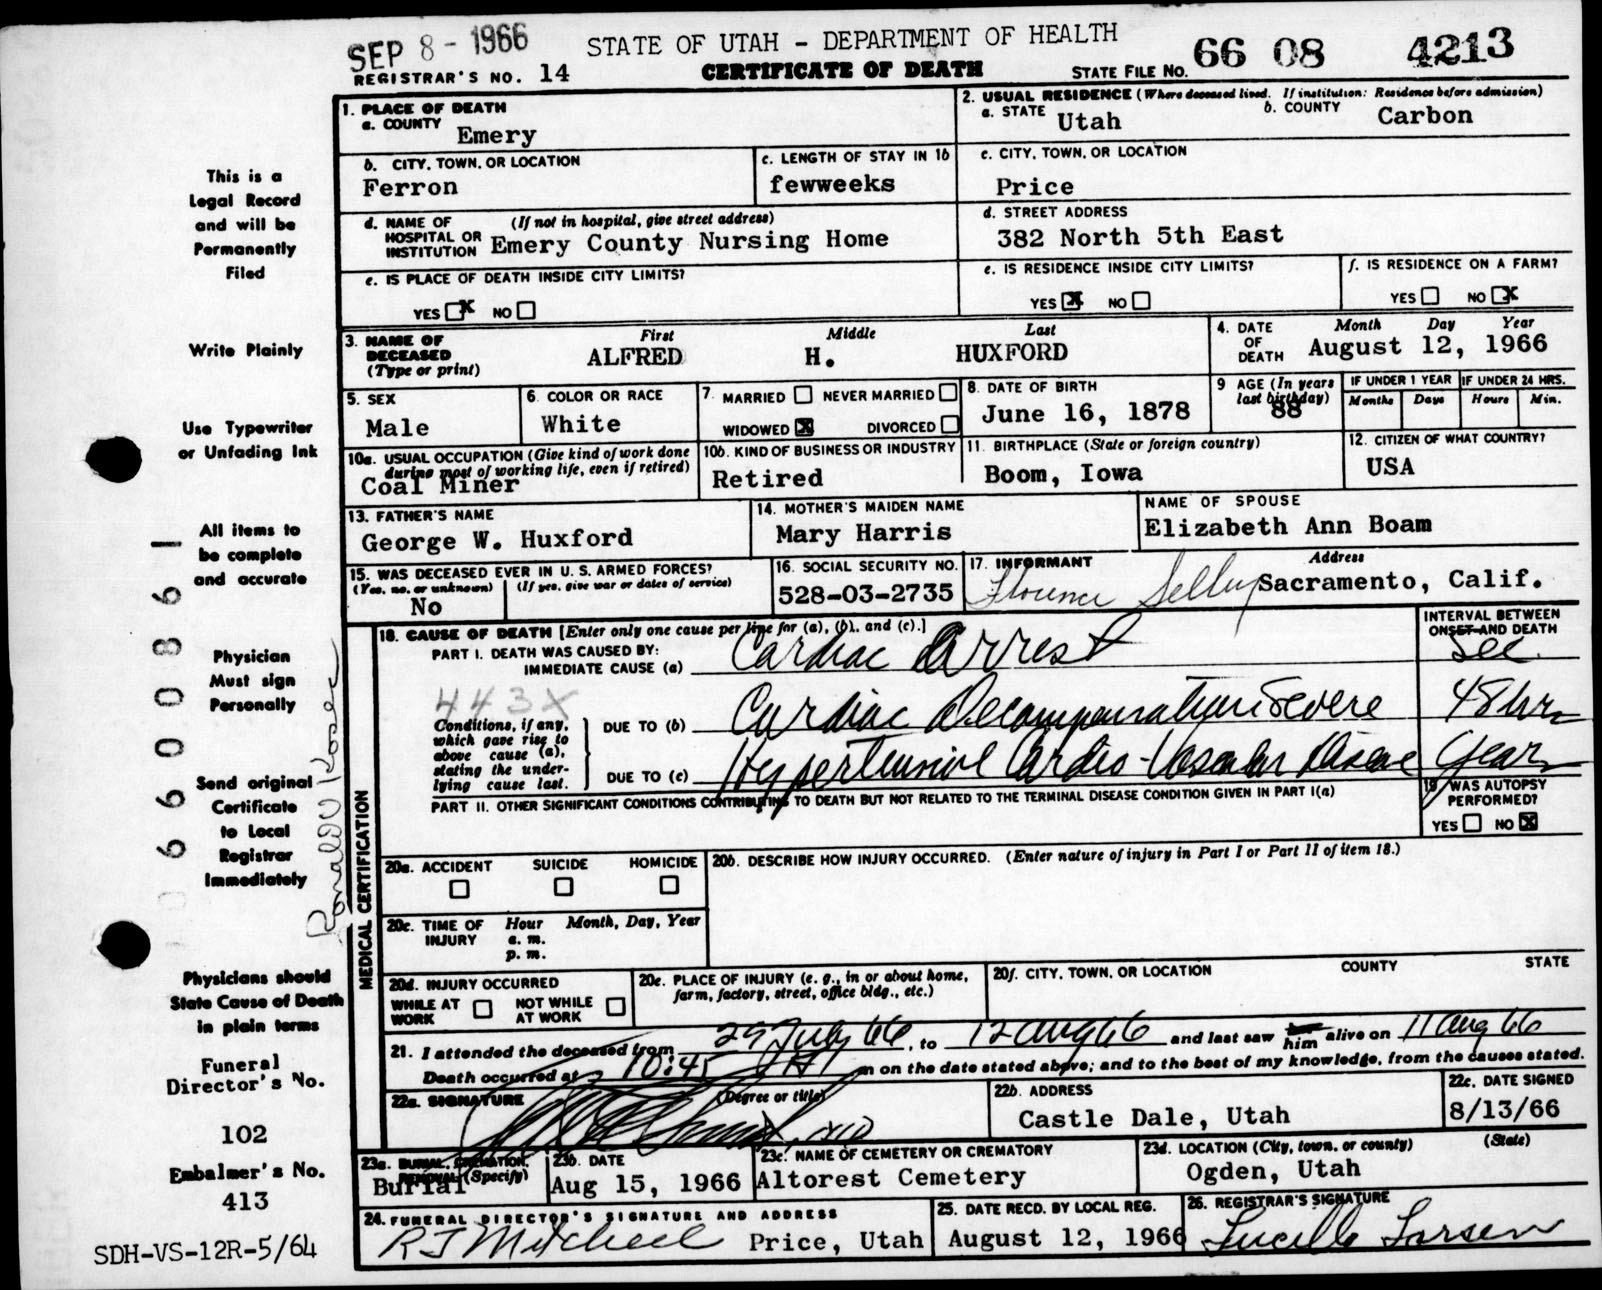 SEP 8 - 1966 STATE OF UTAH - DEPARTMENT OF HEALTH
REGISTRAR'S NO. 14 CERTIFICATE OF DEATH STATE FILE NO. 66 08 4213
1. PLACE OF DEATH
a. COUNTY Emery
2. USUAL RESIDENCE (Where deceased lived. If institution: Residence before admission)
a. STATE Utah b. COUNTY Carbon
b. CITY, TOWN, OR LOCATION
Ferron
c. LENGTH OF STAY IN 1b
fewweeks
c. CITY, TOWN, OR LOCATION
Price
d. NAME OF HOSPITAL OR INSTITUTION (If not in hospital, give street address)
Emery County Nursing Home
d. STREET ADDRESS
382 North 5th East
e. IS PLACE OF DEATH INSIDE CITY LIMITS?
YES X NO
e. IS RESIDENCE INSIDE CITY LIMITS?
YES X NO
f. IS RESIDENCE ON A FARM?
YES NO X
3. NAME OF DECEASED (Type or print)
First Middle Last
ALFRED H. HUXFORD
4. DATE OF DEATH
Month Day Year
August 12, 1966
5. SEX
Male
6. COLOR OR RACE
White
7. MARRIED NEVER MARRIED
WIDOWED X DIVORCED
8. DATE OF BIRTH
June 16, 1878
9 AGE (In years last birthday)
88
IF UNDER 1 YEAR
Months Days
IF UNDER 24 HRS.
Hours Min.
10a. USUAL OCCUPATION (Give kind of work done during most of working life, even if retired)
Coal Miner
10b. KIND OF BUSINESS OR INDUSTRY
Retired
11. BIRTHPLACE (State or foreign country)
Boom, Iowa
12. CITIZEN OF WHAT COUNTRY?
USA
13. FATHER'S NAME
George W. Huxford
14. MOTHER'S MAIDEN NAME
Mary Harris
NAME OF SPOUSE
Elizabeth Ann Boam
15. WAS DECEASED EVER IN U. S. ARMED FORCES?
(Yes, no, or unknown) (If yes, give war or dates of service)
No
16. SOCIAL SECURITY NO.
528-03-2735
17. INFORMANT Address
Florence Selby Sacramento, Calif.
18. CAUSE OF DEATH [Enter only one cause per line for (a), (b), and (c).]
INTERVAL BETWEEN ONSET AND DEATH
PART I. DEATH WAS CAUSED BY:
IMMEDIATE CAUSE (a) Cardiac Arrest Sec.
443X
Conditions, if any, which gave rise to above cause (a), stating the underlying cause last.
DUE TO (b) Cardiac Decompensation Severe 48 hrs
DUE TO (c) Hypertensive Cardio-Vascular Disease Years
PART II. OTHER SIGNIFICANT CONDITIONS CONTRIBUTING TO DEATH BUT NOT RELATED TO THE TERMINAL DISEASE CONDITION GIVEN IN PART I(a)
19. WAS AUTOPSY PERFORMED?
YES NO X
MEDICAL CERTIFICATION
20a. ACCIDENT SUICIDE HOMICIDE
20b. DESCRIBE HOW INJURY OCCURRED. (Enter nature of injury in Part I or Part II of item 18.)
20c. TIME OF INJURY Hour Month, Day, Year
a. m.
p. m.
20d. INJURY OCCURRED
WHILE AT WORK NOT WHILE AT WORK
20e. PLACE OF INJURY (e. g., in or about home, farm, factory, street, office bldg., etc.)
20f. CITY, TOWN, OR LOCATION COUNTY STATE
21. I attended the deceased from 29 July 66, to 12 Aug 66 and last saw her him alive on 11 Aug 66
Death occurred at 10:45 m on the date stated above; and to the best of my knowledge, from the causes stated.
22a. SIGNATURE (Degree or title)
22b. ADDRESS
Castle Dale, Utah
22c. DATE SIGNED
8/13/66
23a. BURIAL, CREMATION, REMOVAL (Specify)
Burial
23b. DATE
Aug 15, 1966
23c. NAME OF CEMETERY OR CREMATORY
Altorest Cemetery
23d. LOCATION (City, town, or county) (State)
Ogden, Utah
24. FUNERAL DIRECTOR'S SIGNATURE AND ADDRESS
R J Mitchell Price, Utah
25. DATE RECD. BY LOCAL REG.
August 12, 1966
26. REGISTRAR'S SIGNATURE
Lucille Larsen
This is a
Legal Record
and will be
Permanently
Filed
Write Plainly
Use Typewriter
or Unfading Ink
All items to
be complete
and accurate
Physician
Must sign
Personally
Send original
Certificate
to Local
Registrar
Immediately
Physicians should
State Cause of Death
in plain terms
Funeral
Director's No.
102
Embalmer's No.
413
SDH-VS-12R-5/64